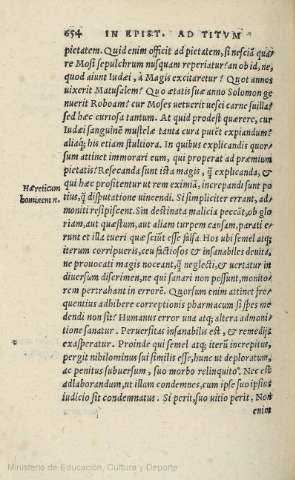 654 IN EPIST. AD TITVM
pietatem. Quid enim officit ad pietatem, si nesciã quare
re Mosi sepulcrum nusquam reperiatur? an ob id, ne,
quod aiunt Iudæi, à Magis excitaretur? Quot annos
uixerit Matusalem? Quo ætatis suæ anno Solomon ge
nuerit Roboam? cur Moses uetuerit uesci carne suilla?
sed hæc curiosa tantum. At quid prodest quærere, cur
Iudæi sanguinē mustelæ tanta cura putēt expiandum?
aliaq; his etiam stultiora. In quibus explicandis quor
sum attinet immorari eum, qui properat ad præmium
pietatis? Resecanda sunt ista magis, q̃ explicanda, &
qui hæc profitentur ut rem eximiã, increpandi sunt po
tius, q̃ disputatione uincendi. Si simpliciter errant, ad
moniti resipiscent. Sin destinata malicia peccãt, ob glo
riam, aut quæstum, aut aliam turpem causam, parati e-
runt et illa tueri quæ sciũt esse falsa. Hos ubi semel atq;
Hæreticum
hominem n.
iterum corripueris, ceu factiosos & insanabiles deuita,
ne prouocati magis noceant, q̃ neglecti, & uertatur in
diuersum discrimen, ne qui sanari non possunt, monito
rem pertrahant in errorē. Quorsum enim attinet fre
quentius adhibere correptionis pharmacum si spes me
dendi non sit? Humanus error una atq; altera admoni
tione sanatur. Peruersitas insanabilis est, & remedijs
exasperatur. Proinde qui semel atq; iterũ increpitus,
pergit nihilominus sui similis esse, hunc ut deploratum,
ac penitus subuersum, suo morbo relinquito. Nec est
adlaborandum, ut illam condemnes, cum ipse suo ipsius
iudicio sit condemnatus. Si perit, suo uitio perit. Non
enim
Ministerio de Educación, Cultura y Deporte